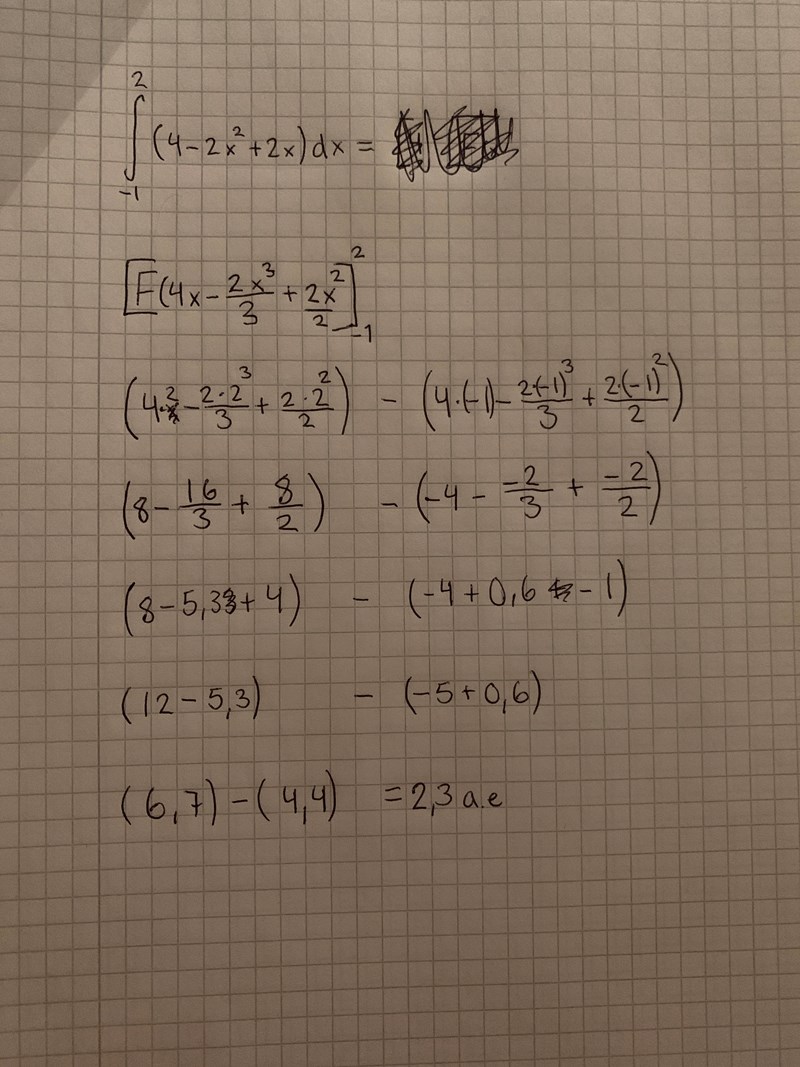 ∫₋₁² (4-2x²+2x)dx =
[F(4x - 2x³/3 + 2x²/2]₋₁²
(4·2 - 2·2³/3 + 2·2²/2) - (4·(-1) - 2·(-1)³/3 + 2·(-1)²/2)
(8 - 16/3 + 8/2) - (-4 - -2/3 + -2/2)
(8 - 5,3 + 4) - (-4 + 0,6 - 1)
(12 - 5,3) - (-5 + 0,6)
(6,7) - (4,4) = 2,3 a.e